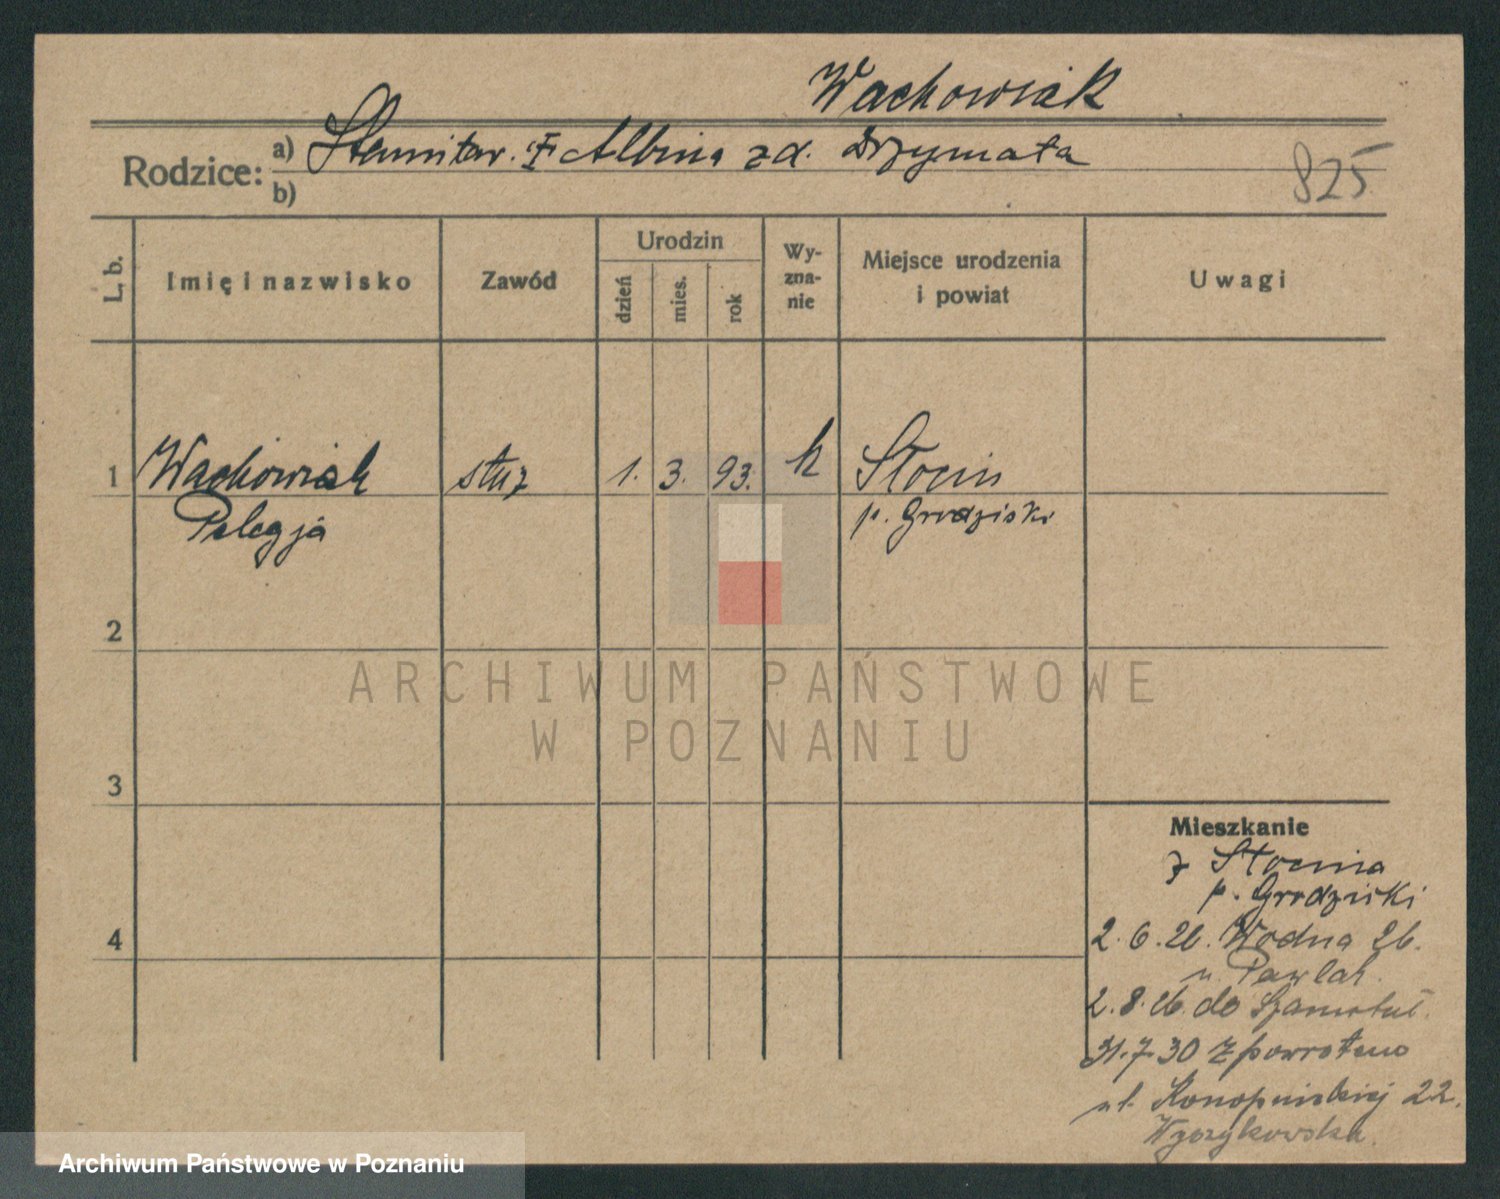 Wachowiak
Rodzice: a) Stanisław. i Albina z d. Drzymała
b)
825
L. b.
Imię i nazwisko
Zawód
Urodzin
dzień
mies.
rok
Wy-
zna-
nie
Miejsce urodzenia
i powiat
Uwagi
1 Wachowiak służ 1. 3. 93. k Słocin
Pelagja p. Grodziski
2
3
4
ARCHIWUM PAŃSTWOWE
W POZNANIU
Mieszkanie
z Słocina
p. Grodziski
2.6.26. Wodna 26.
u. Pawlak.
2.8.26. do Szamotuł.
31.7.30 z powrotem
ul. Konopnickiej 22.
Archiwum Państwowe w Poznaniu